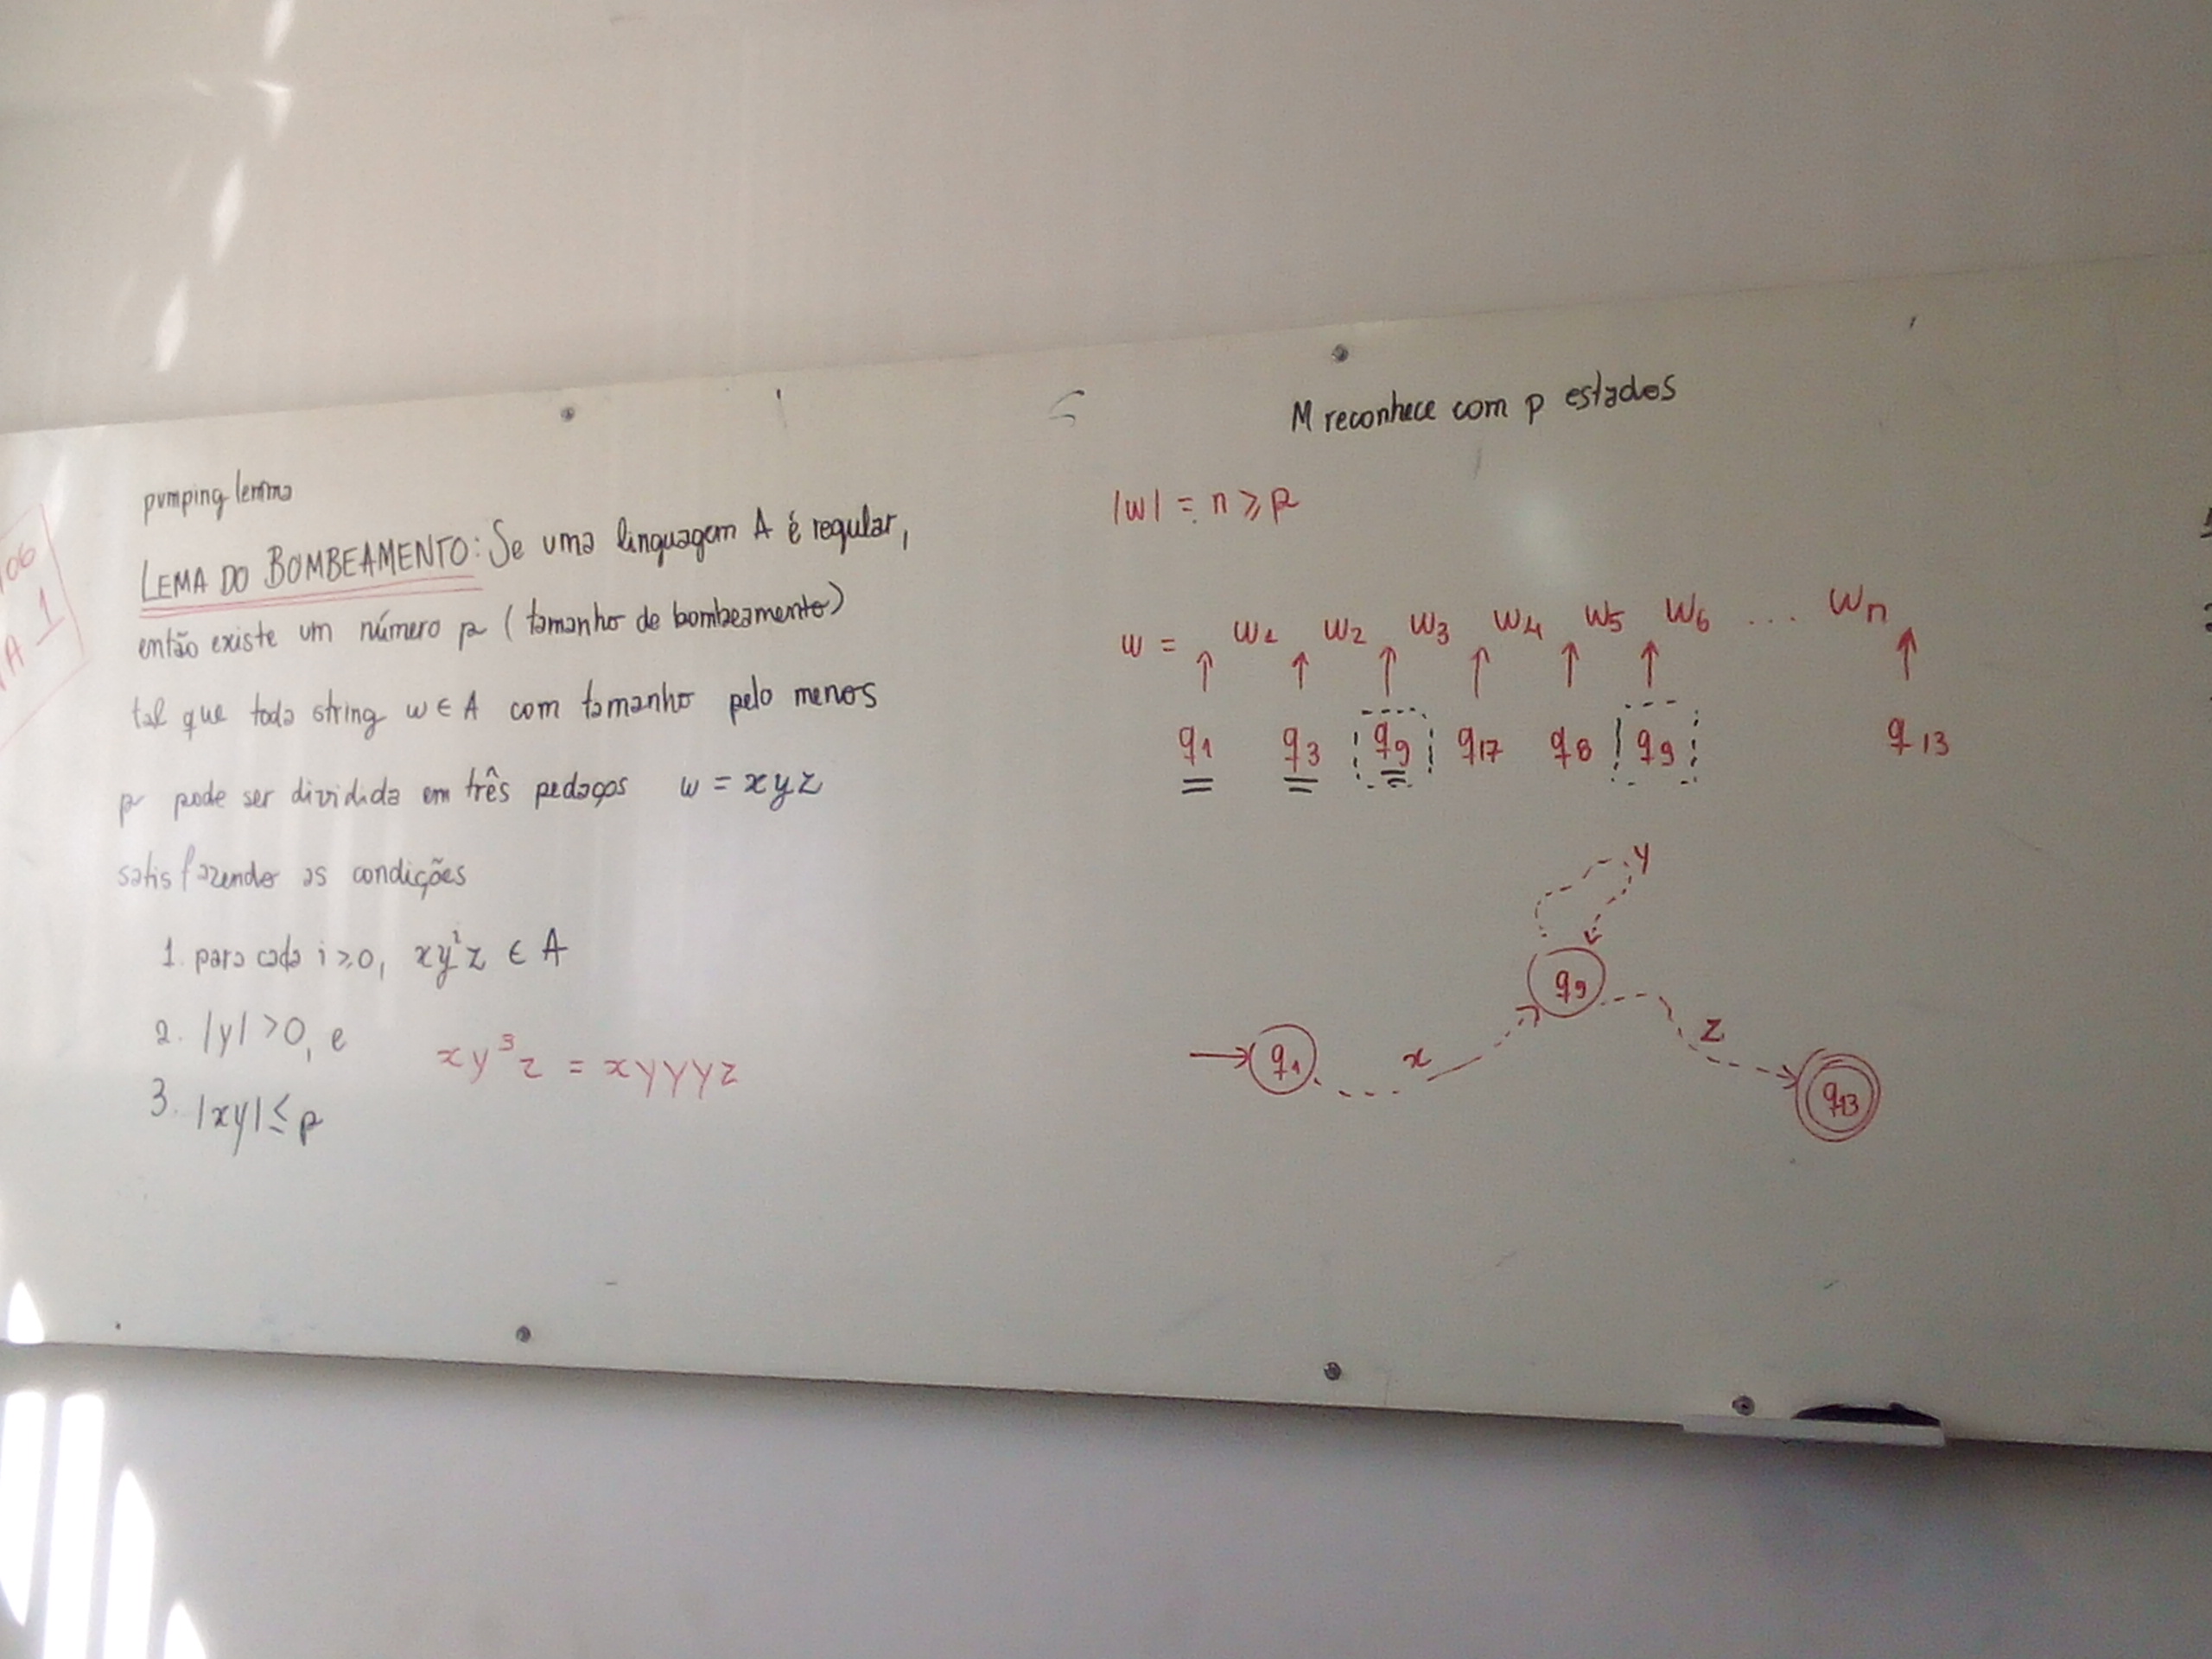 pumping lemma
LEMA DO BOMBEAMENTO: Se uma linguagem A é regular,
então existe um número p (tamanho de bombeamento)
tal que toda string w ∈ A com tamanho pelo menos
p pode ser dividida em três pedaços w = xyz
satisfazendo as condições
1. para cada i ≥ 0, xyⁱz ∈ A
2. |y| > 0, e
xy³z = xyyyz
3. |xy| ≤ p
M reconhece com p estados
|w| = n ≥ p
w = w₁ w₂ w₃ w₄ w₅ w₆ ... wₙ
q₁ q₃ q₉ q₁₇ q₈ q₉ q₁₃
y
q₉
z
q₁ x
q₁₃
06
A 1